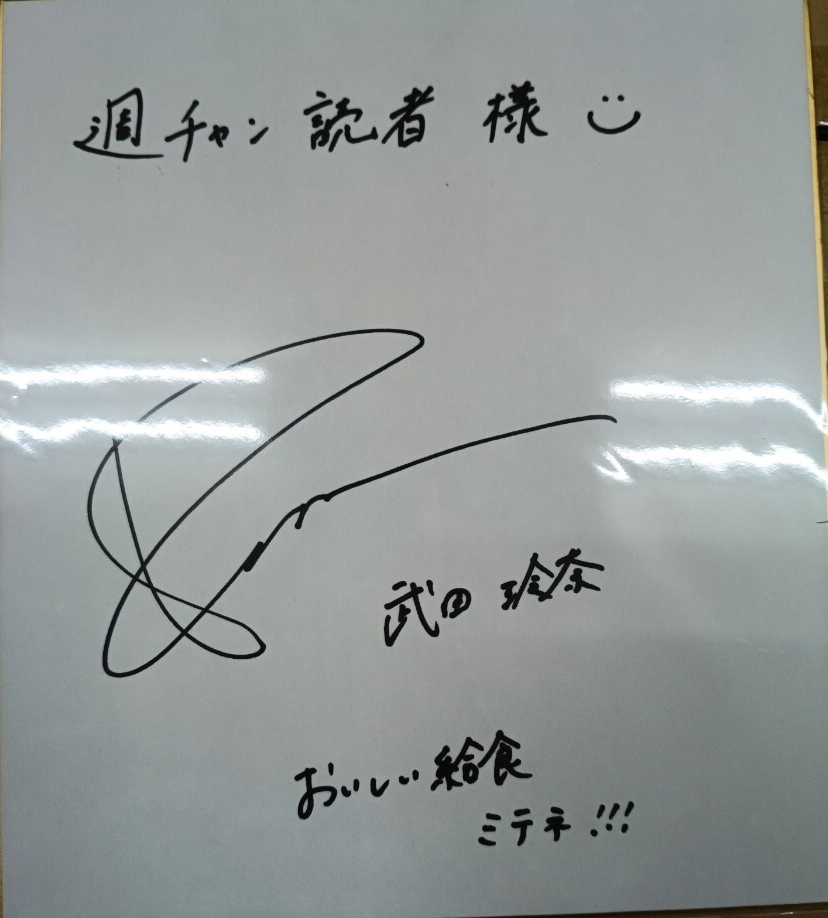 週チャン 読者 様
武田 玲奈
おいしい給食
ミテネ!!!